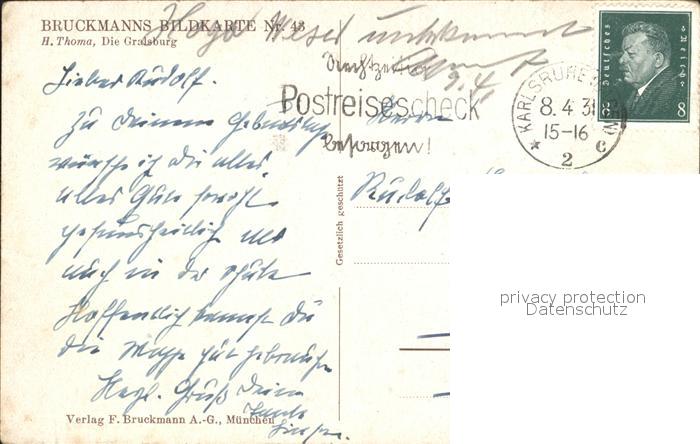 BRUCKMANNS BILDKARTE Nr. 43
H. Thoma, Die Gralsburg
unbekannt
9.4.
Deutsches Reich
8 8
KARLSRUHE
8.4.31
15-16
2 c
Rechtzeitig
Postreisescheck
besorgen!
Lieber Rudolf.
Zu Deinem Geburtstag
wünsche ich Dir alles
alles Gute sowohl
gesundheitlich als
auch in der Schule
Hoffentlich kannst Du
die Mappe gut gebrauchen
Herzl. Gruß Deine
Tante
Herrn
Rudolf
Gesetzlich geschützt
Verlag F. Bruckmann A.-G., München
privacy protection
Datenschutz